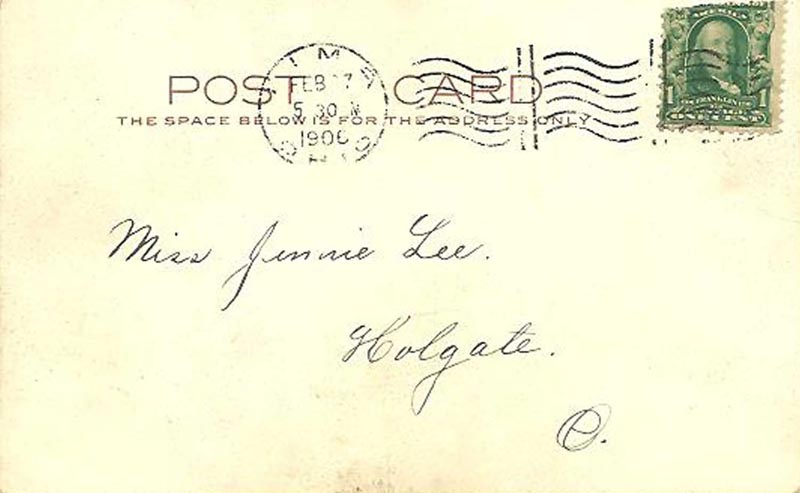 LIMA
FEB 17
5 30
1906
OHIO
POST CARD
THE SPACE BELOW IS FOR THE ADDRESS ONLY
AMERICA
1 FRANKLIN 1
Miss Jennie Lee.
Holgate.
O.